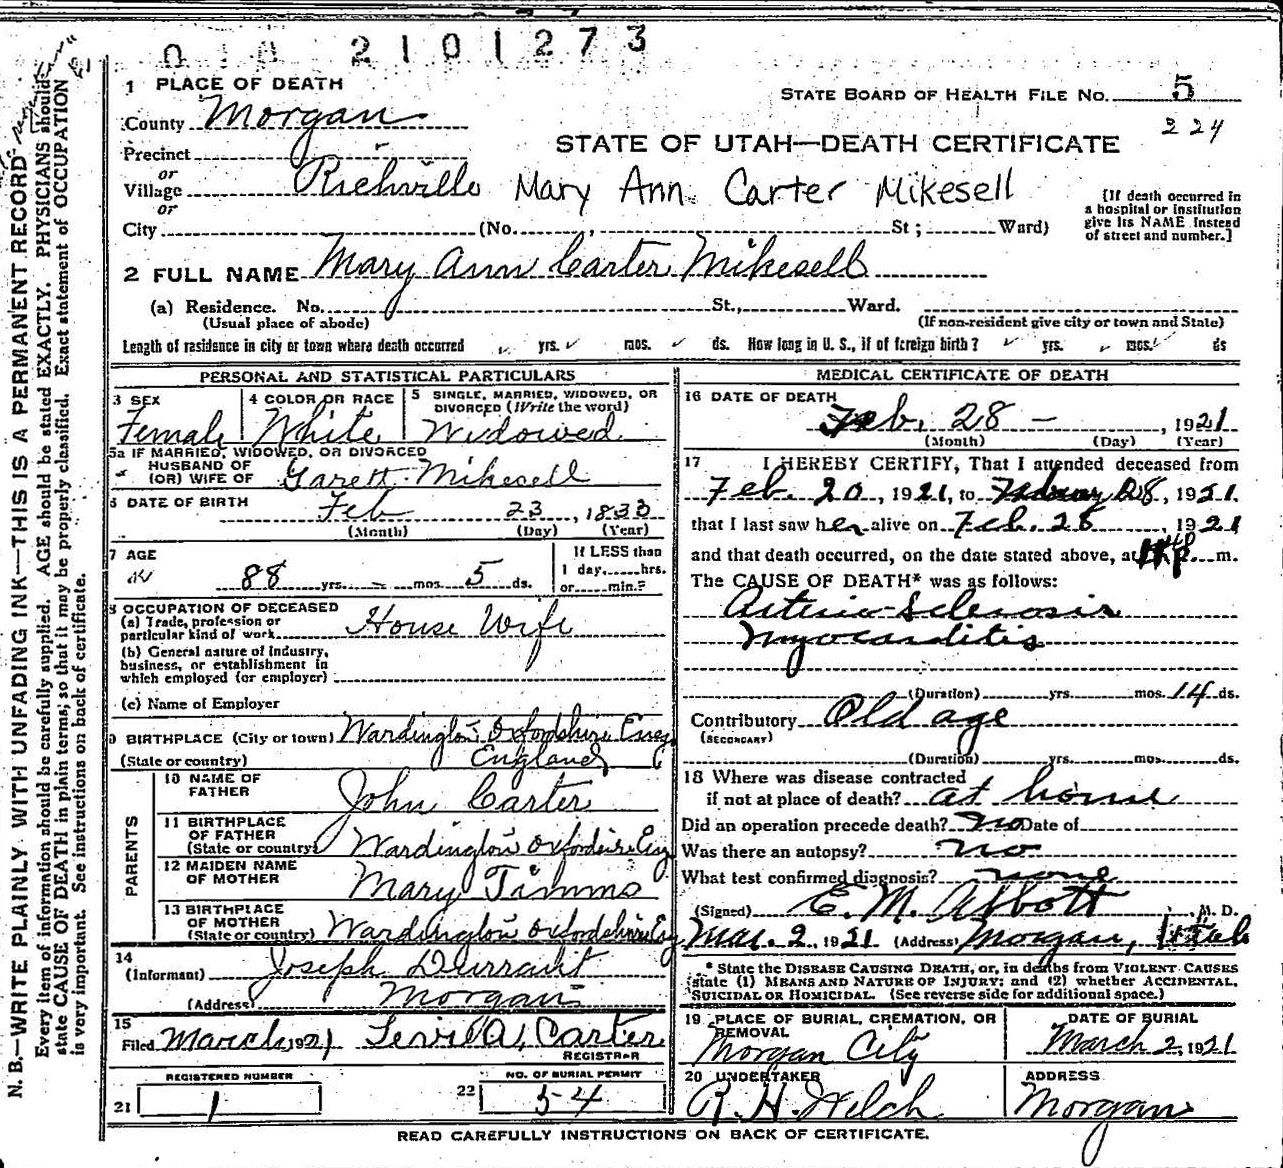 2101273
1 PLACE OF DEATH
STATE BOARD OF HEALTH FILE NO. 5
224
County Morgan
STATE OF UTAH—DEATH CERTIFICATE
Precinct
or
Village Richville Mary Ann Carter Mikesell
or
City (No. , St ; Ward)
[If death occurred in
a hospital or institution
give its NAME instead
of street and number.]
2 FULL NAME Mary Ann Carter Mikesell
(a) Residence. No. St., Ward.
(Usual place of abode) (If non-resident give city or town and State)
Length of residence in city or town where death occurred yrs. mos. ds. How long in U. S., if of foreign birth? yrs. mos. ds
PERSONAL AND STATISTICAL PARTICULARS
3 SEX Female
4 COLOR OR RACE White
5 SINGLE, MARRIED, WIDOWED, OR
DIVORCED (Write the word)
Widowed
5a IF MARRIED, WIDOWED, OR DIVORCED
HUSBAND OF
(OR) WIFE OF Garett Mikesell
6 DATE OF BIRTH Feb 23, 1833
(Month) (Day) (Year)
7 AGE
88 yrs. – mos 5 ds.
If LESS than
1 day, hrs.
or min.?
8 OCCUPATION OF DECEASED
(a) Trade, profession or
particular kind of work House Wife
(b) General nature of industry,
business, or establishment in
which employed (or employer)
(c) Name of Employer
9 BIRTHPLACE (City or town) Wardington Oxfordshire
(State or country) England
PARENTS
10 NAME OF
FATHER John Carter
11 BIRTHPLACE
OF FATHER
(State or country) Wardington Eng
12 MAIDEN NAME
OF MOTHER Mary Timms
13 BIRTHPLACE
OF MOTHER
(State or country) Wardington Oxfordshire Eng
14
(Informant) Joseph Durrant
(Address) Morgan
15
Filed March, 1921 Carter
REGISTRAR
REGISTERED NUMBER
21 1
NO. OF BURIAL PERMIT
22 54
MEDICAL CERTIFICATE OF DEATH
16 DATE OF DEATH
Feb. 28 –, 1921
(Month) (Day) (Year)
17 I HEREBY CERTIFY, That I attended deceased from
Feb. 20, 1921, to February 28, 1921.
that I last saw her alive on Feb. 28, 1921
and that death occurred, on the date stated above, at m.
The CAUSE OF DEATH* was as follows:
Arterio-Sclerosis
Myocarditis
(Duration) yrs. mos. 14 ds.
Contributory Old age
(SECONDARY)
(Duration) yrs. mos. ds.
18 Where was disease contracted
if not at place of death? at home
Did an operation precede death? no Date of
Was there an autopsy? no
What test confirmed diagnosis? none
(Signed) E. M. Abbott, M. D.
Mar. 2, 1921 (Address) Morgan, Utah
* State the DISEASE CAUSING DEATH, or, in deaths from VIOLENT CAUSES
state (1) MEANS AND NATURE OF INJURY; and (2) whether ACCIDENTAL,
SUICIDAL OR HOMICIDAL. (See reverse side for additional space.)
19 PLACE OF BURIAL, CREMATION, OR
REMOVAL
Morgan City
DATE OF BURIAL
March 2, 1921
20 UNDERTAKER
R. H. Welch
ADDRESS
Morgan
READ CAREFULLY INSTRUCTIONS ON BACK OF CERTIFICATE.
N. B.—WRITE PLAINLY WITH UNFADING INK—THIS IS A PERMANENT RECORD
Every item of information should be carefully supplied. AGE should be stated EXACTLY. PHYSICIANS should
state CAUSE OF DEATH in plain terms; so that it may be properly classified. Exact statement of OCCUPATION
is very important. See instructions on back of certificate.